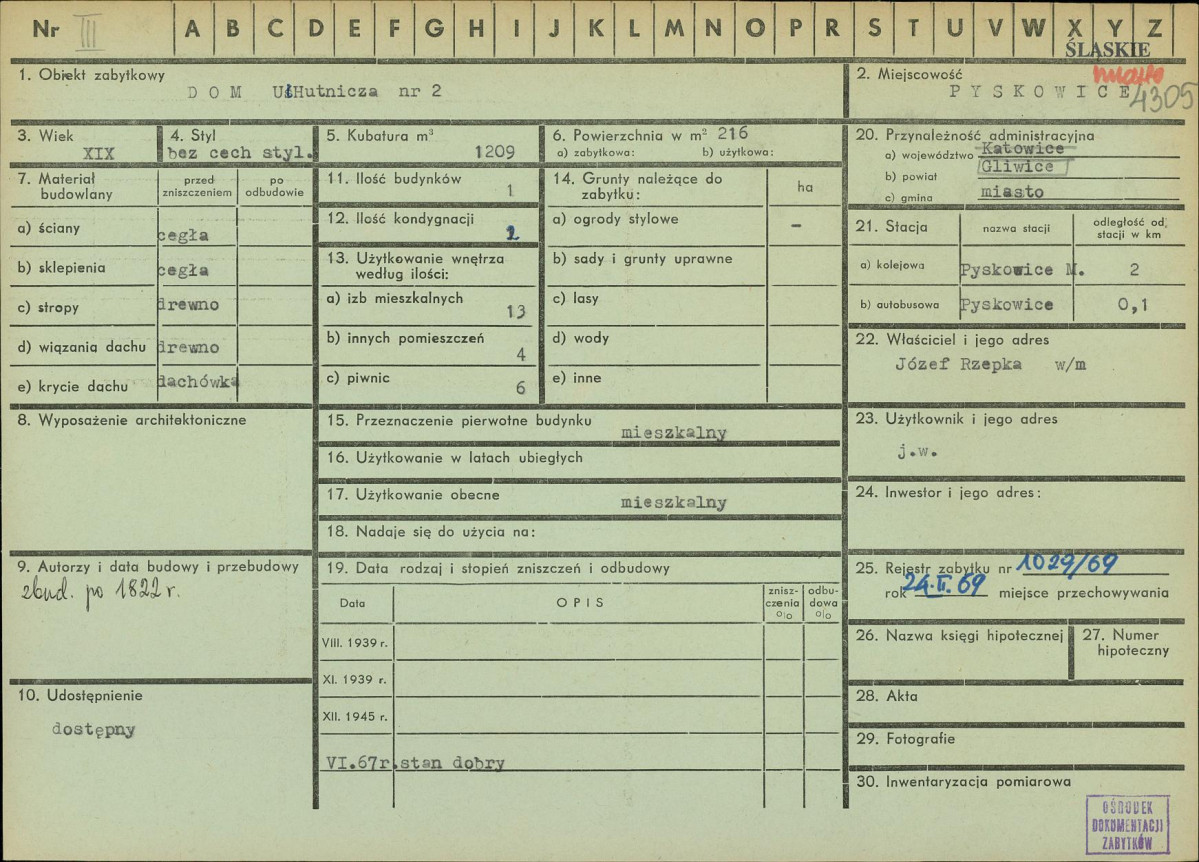 Nr III A B C D E F G H I J K L M N O P R S T U V W X Y Z
ŚLĄSKIE
1. Obiekt zabytkowy
DOM Ul Hutnicza nr 2
2. Miejscowość
miasto
PYSKOWICE 4305
3. Wiek
XIX
4. Styl
bez cech styl.
5. Kubatura m³
1209
6. Powierzchnia w m² 216
a) zabytkowa: b) użytkowa:
7. Materiał budowlany
przed zniszczeniem
po odbudowie
a) ściany cegła
b) sklepienia cegła
c) stropy drewno
d) wiązania dachu drewno
e) krycie dachu dachówka
8. Wyposażenie architektoniczne
9. Autorzy i data budowy i przebudowy
zbud. po 1822 r.
10. Udostępnienie
dostępny
11. Ilość budynków
1
12. Ilość kondygnacji
2
13. Użytkowanie wnętrza
według ilości:
a) izb mieszkalnych
13
b) innych pomieszczeń
4
c) piwnic
6
14. Grunty należące do
zabytku:
ha
a) ogrody stylowe –
b) sady i grunty uprawne
c) lasy
d) wody
e) inne
15. Przeznaczenie pierwotne budynku
mieszkalny
16. Użytkowanie w latach ubiegłych
17. Użytkowanie obecne
mieszkalny
18. Nadaje się do użycia na:
19. Data rodzaj i stopień zniszczeń i odbudowy
Data
OPIS
znisz-
czenia
%
odbu-
dowa
%
VIII. 1939 r.
XI. 1939 r.
XII. 1945 r.
VI.67r. stan dobry
20. Przynależność administracyjna
a) województwo Katowice
b) powiat Gliwice
c) gmina miasto
21. Stacja
nazwa stacji
odległość od
stacji w km
a) kolejowa Pyskowice M. 2
b) autobusowa Pyskowice 0,1
22. Właściciel i jego adres
Józef Rzepka w/m
23. Użytkownik i jego adres
j.w.
24. Inwestor i jego adres:
25. Rejestr zabytku nr 1029/69
rok 24.II.69 miejsce przechowywania
26. Nazwa księgi hipotecznej
27. Numer
hipoteczny
28. Akta
29. Fotografie
30. Inwentaryzacja pomiarowa
OŚRODEK
DOKUMENTACJI
ZABYTKÓW